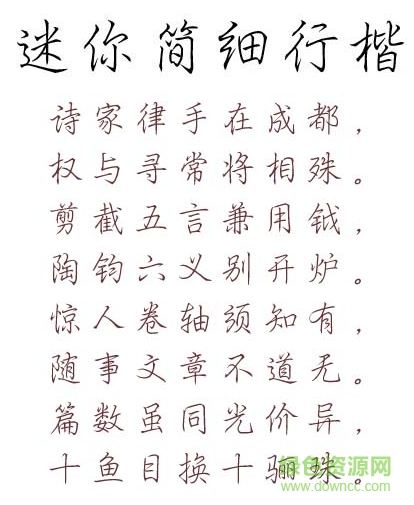 迷你简细行楷
诗家律手在成都，
权与寻常将相殊。
剪截五言兼用钺，
陶钧六义别开炉。
惊人卷轴须知有，
随事文章不道无。
篇数虽同光价异，
十鱼目换十骊珠。
绿色资源网
www.downcc.com